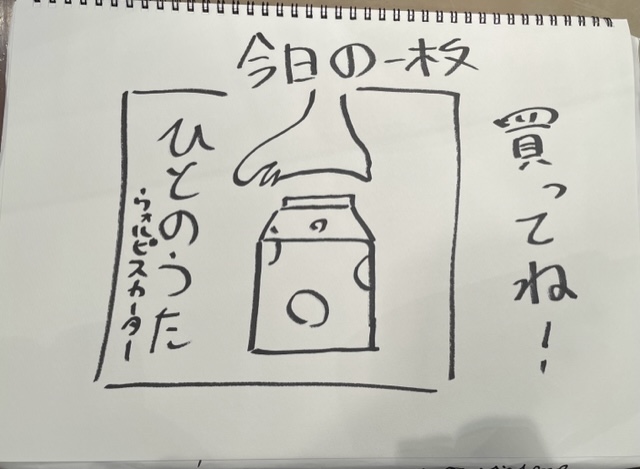 今日の一枚
買ってね!
ひとのうた
ウォルピスカーター